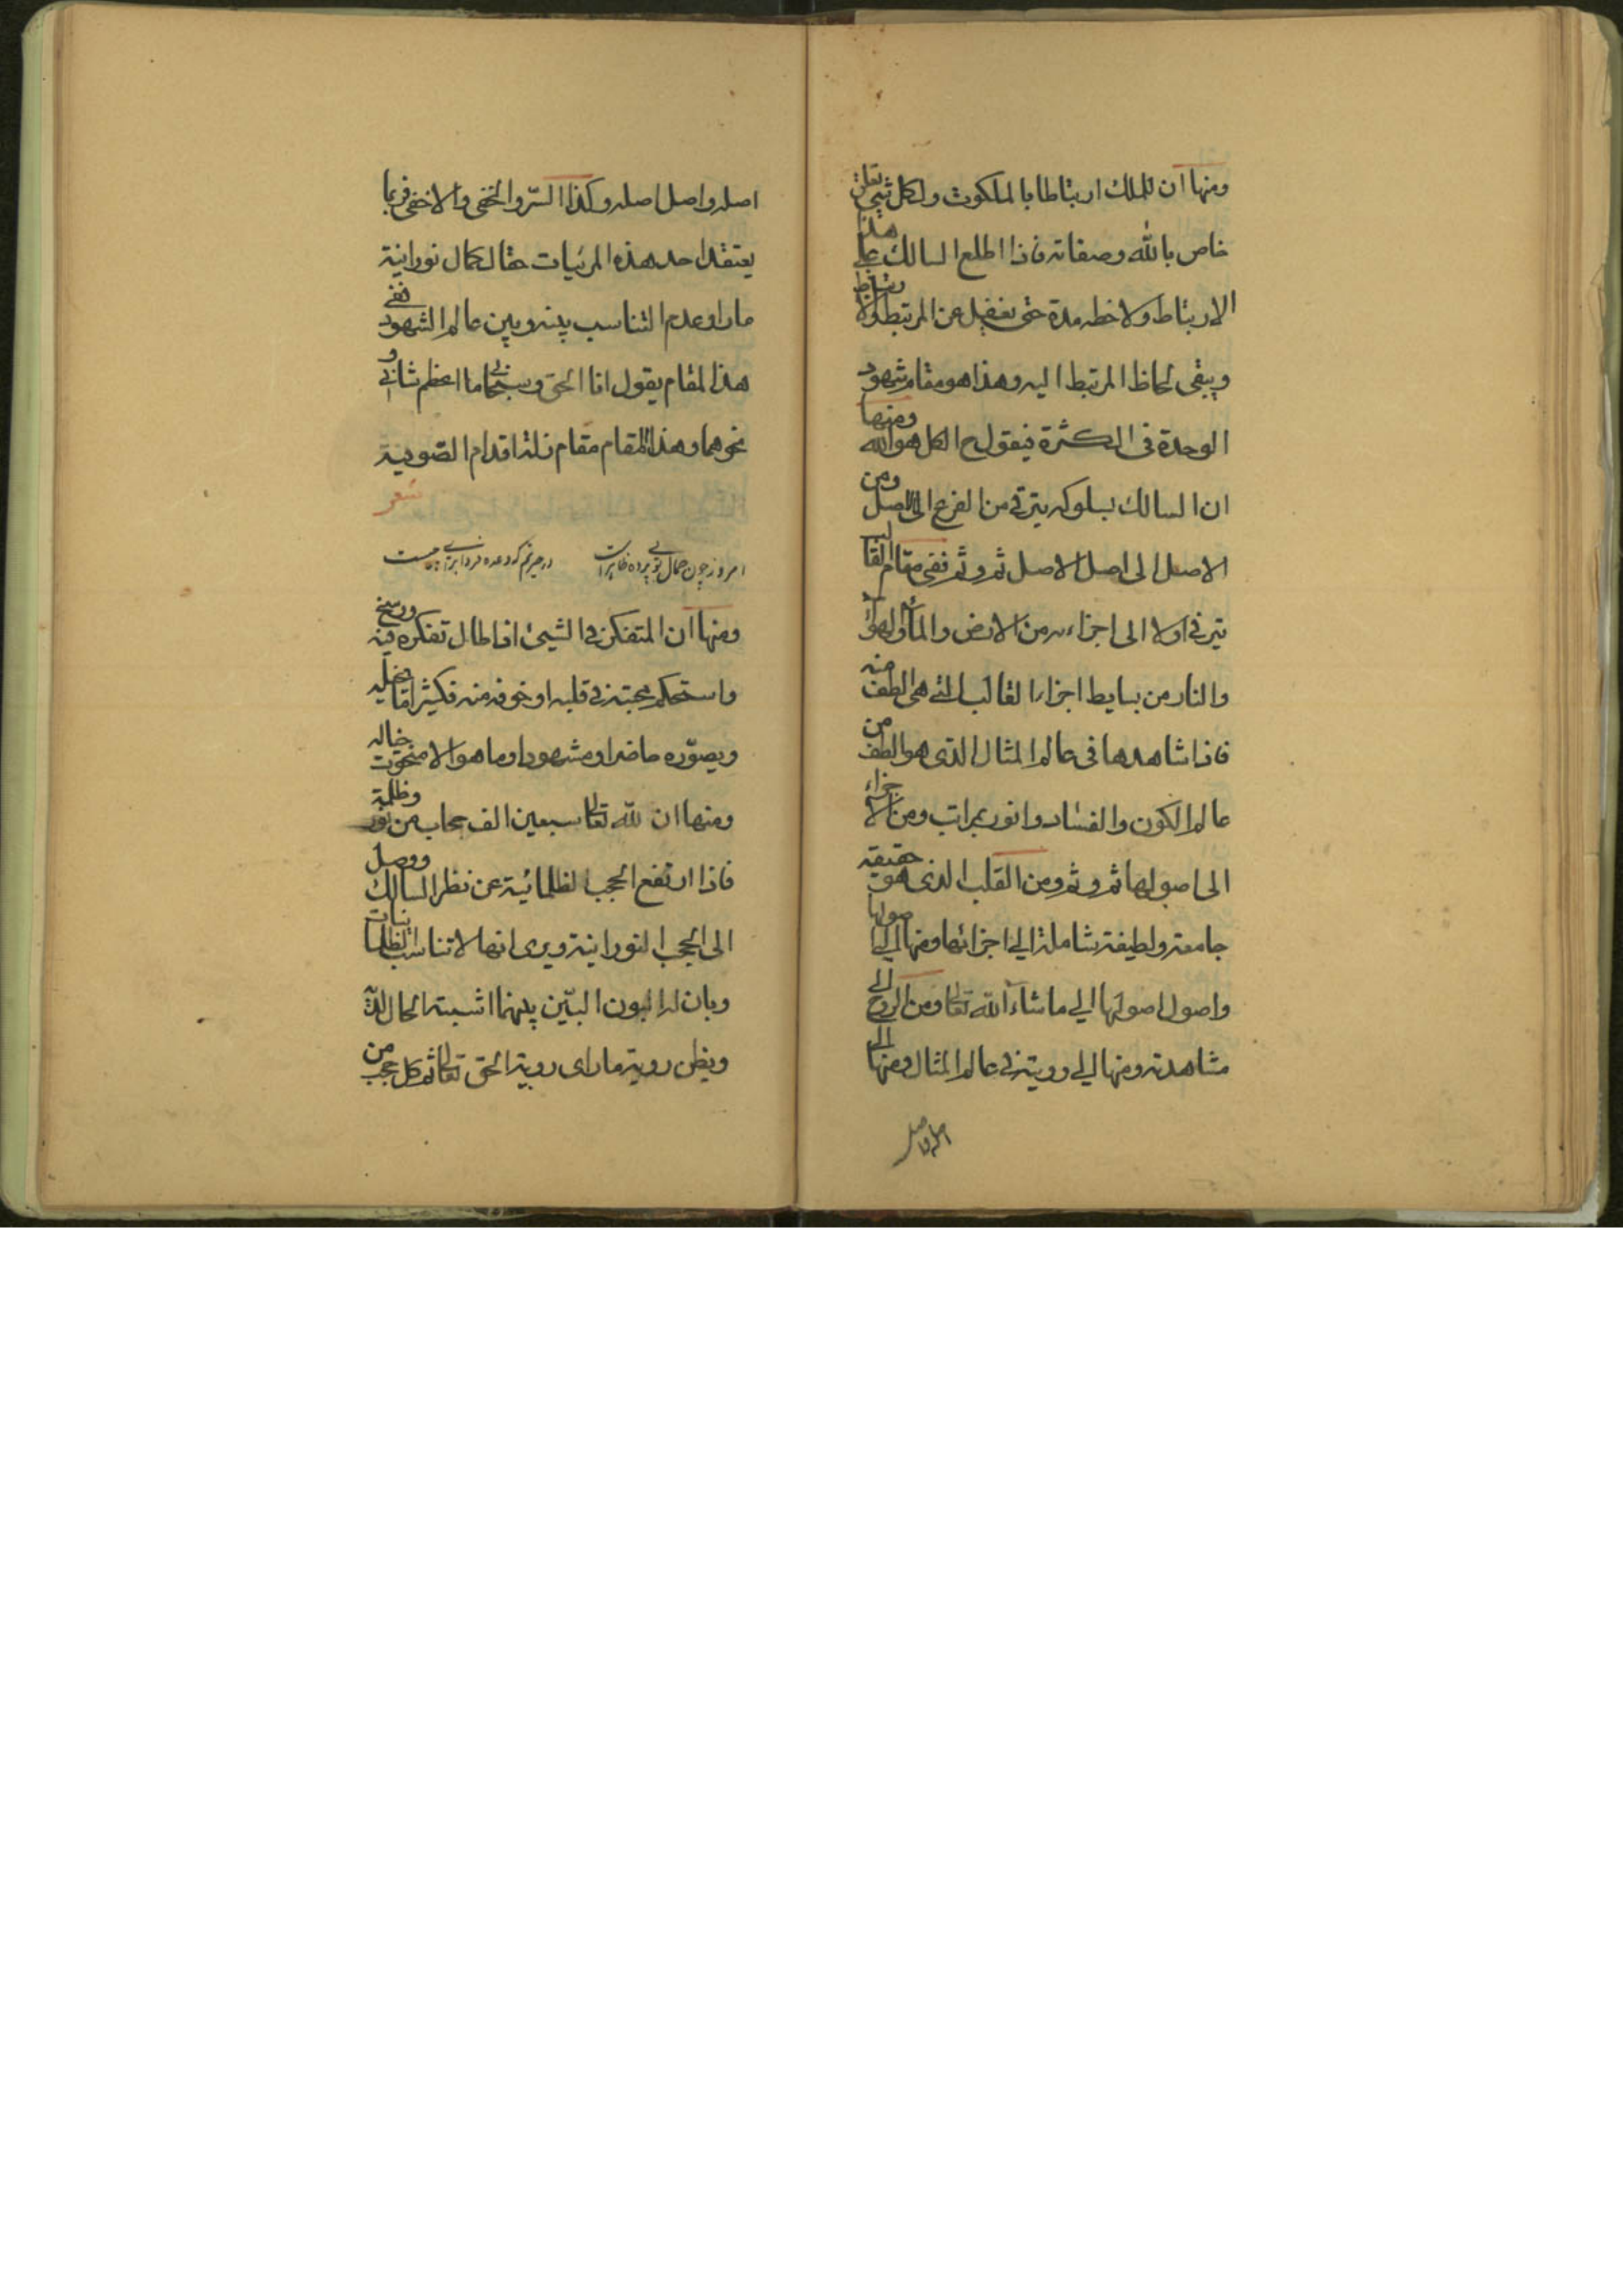 ومنها ان للملك ارتباطا بالملكوت ولكل شيئ تعلق
خاص بالله وصفاته فاذا اطلع السالك على هذا
الارتباط ولاحظه مدة حتى يغفل عن المرتبط والارتباط
ويبقى لحاظ المرتبط اليه وهذا هو مقام شهود
الوحدة فى الكثرة فيقول ح الكل هو الله ومنها
ان السالك بسلوكه يترقى من الفرع الى الاصل ومن
الاصل الى اصل الاصل ثم وثم ففى مقام القالب
يترقى اولا الى اجزاءه من الارض والماء والهواء
والنار من بسايط اجزاء القالب التى هى الطف منه
فاذا شاهدها فى عالم المثال الذى هو الطف من
عالم الكون والفساد وانور بمراتب ومن الاجزاء
الى اصولها ثم وثم ومن القلب الذى هو حقيقة
جامعة ولطيفة شاملة الى اجزائها ومنها الى اصولها
واصول اصولها الى ما شاء الله تعالى ومن الروح الى
مشاهدته ومنها الى رويته فى عالم المثال ومنها الى
اصله واصل
اصله واصل اصله وكذا السرّ والخفى والاخفى فربما
يعتقد احد هذه المرئيات حقا لكمال نورانية
ما راه وعدم التناسب بينه وبين عالم الشهود ففى
هذا المقام يقول انا الحق وسبحانى ما اعظم شانى و
نحوهما وهذا المقام مقام زلة اقدام الصوفية
شعر
امروز چون جمال تو بى پرده ظاهر است در حيرتم كه وعده فردا براى چيست
ومنها ان المتفكر فى الشيئ اذا طال تفكره فيه ورسخ
واستحكم محبته فى قلبه او خوفه منه فكثيرا ما يخيله
ويصوّره حاضرا ومشهودا وما هو الا منحوت خياله
ومنها ان لله تعالى سبعين الف حجاب من نور وظلمة
فاذا ارتفع الحجب الظلمانية عن نظر السالك ووصل
الى الحجب النورانية ويرى انها لا تناسب الظلمانيات
وبان له البون البيّن بينهما اشبته الحال
ويظن روية ما راى روية الحق تعالى ثم كل حجب من